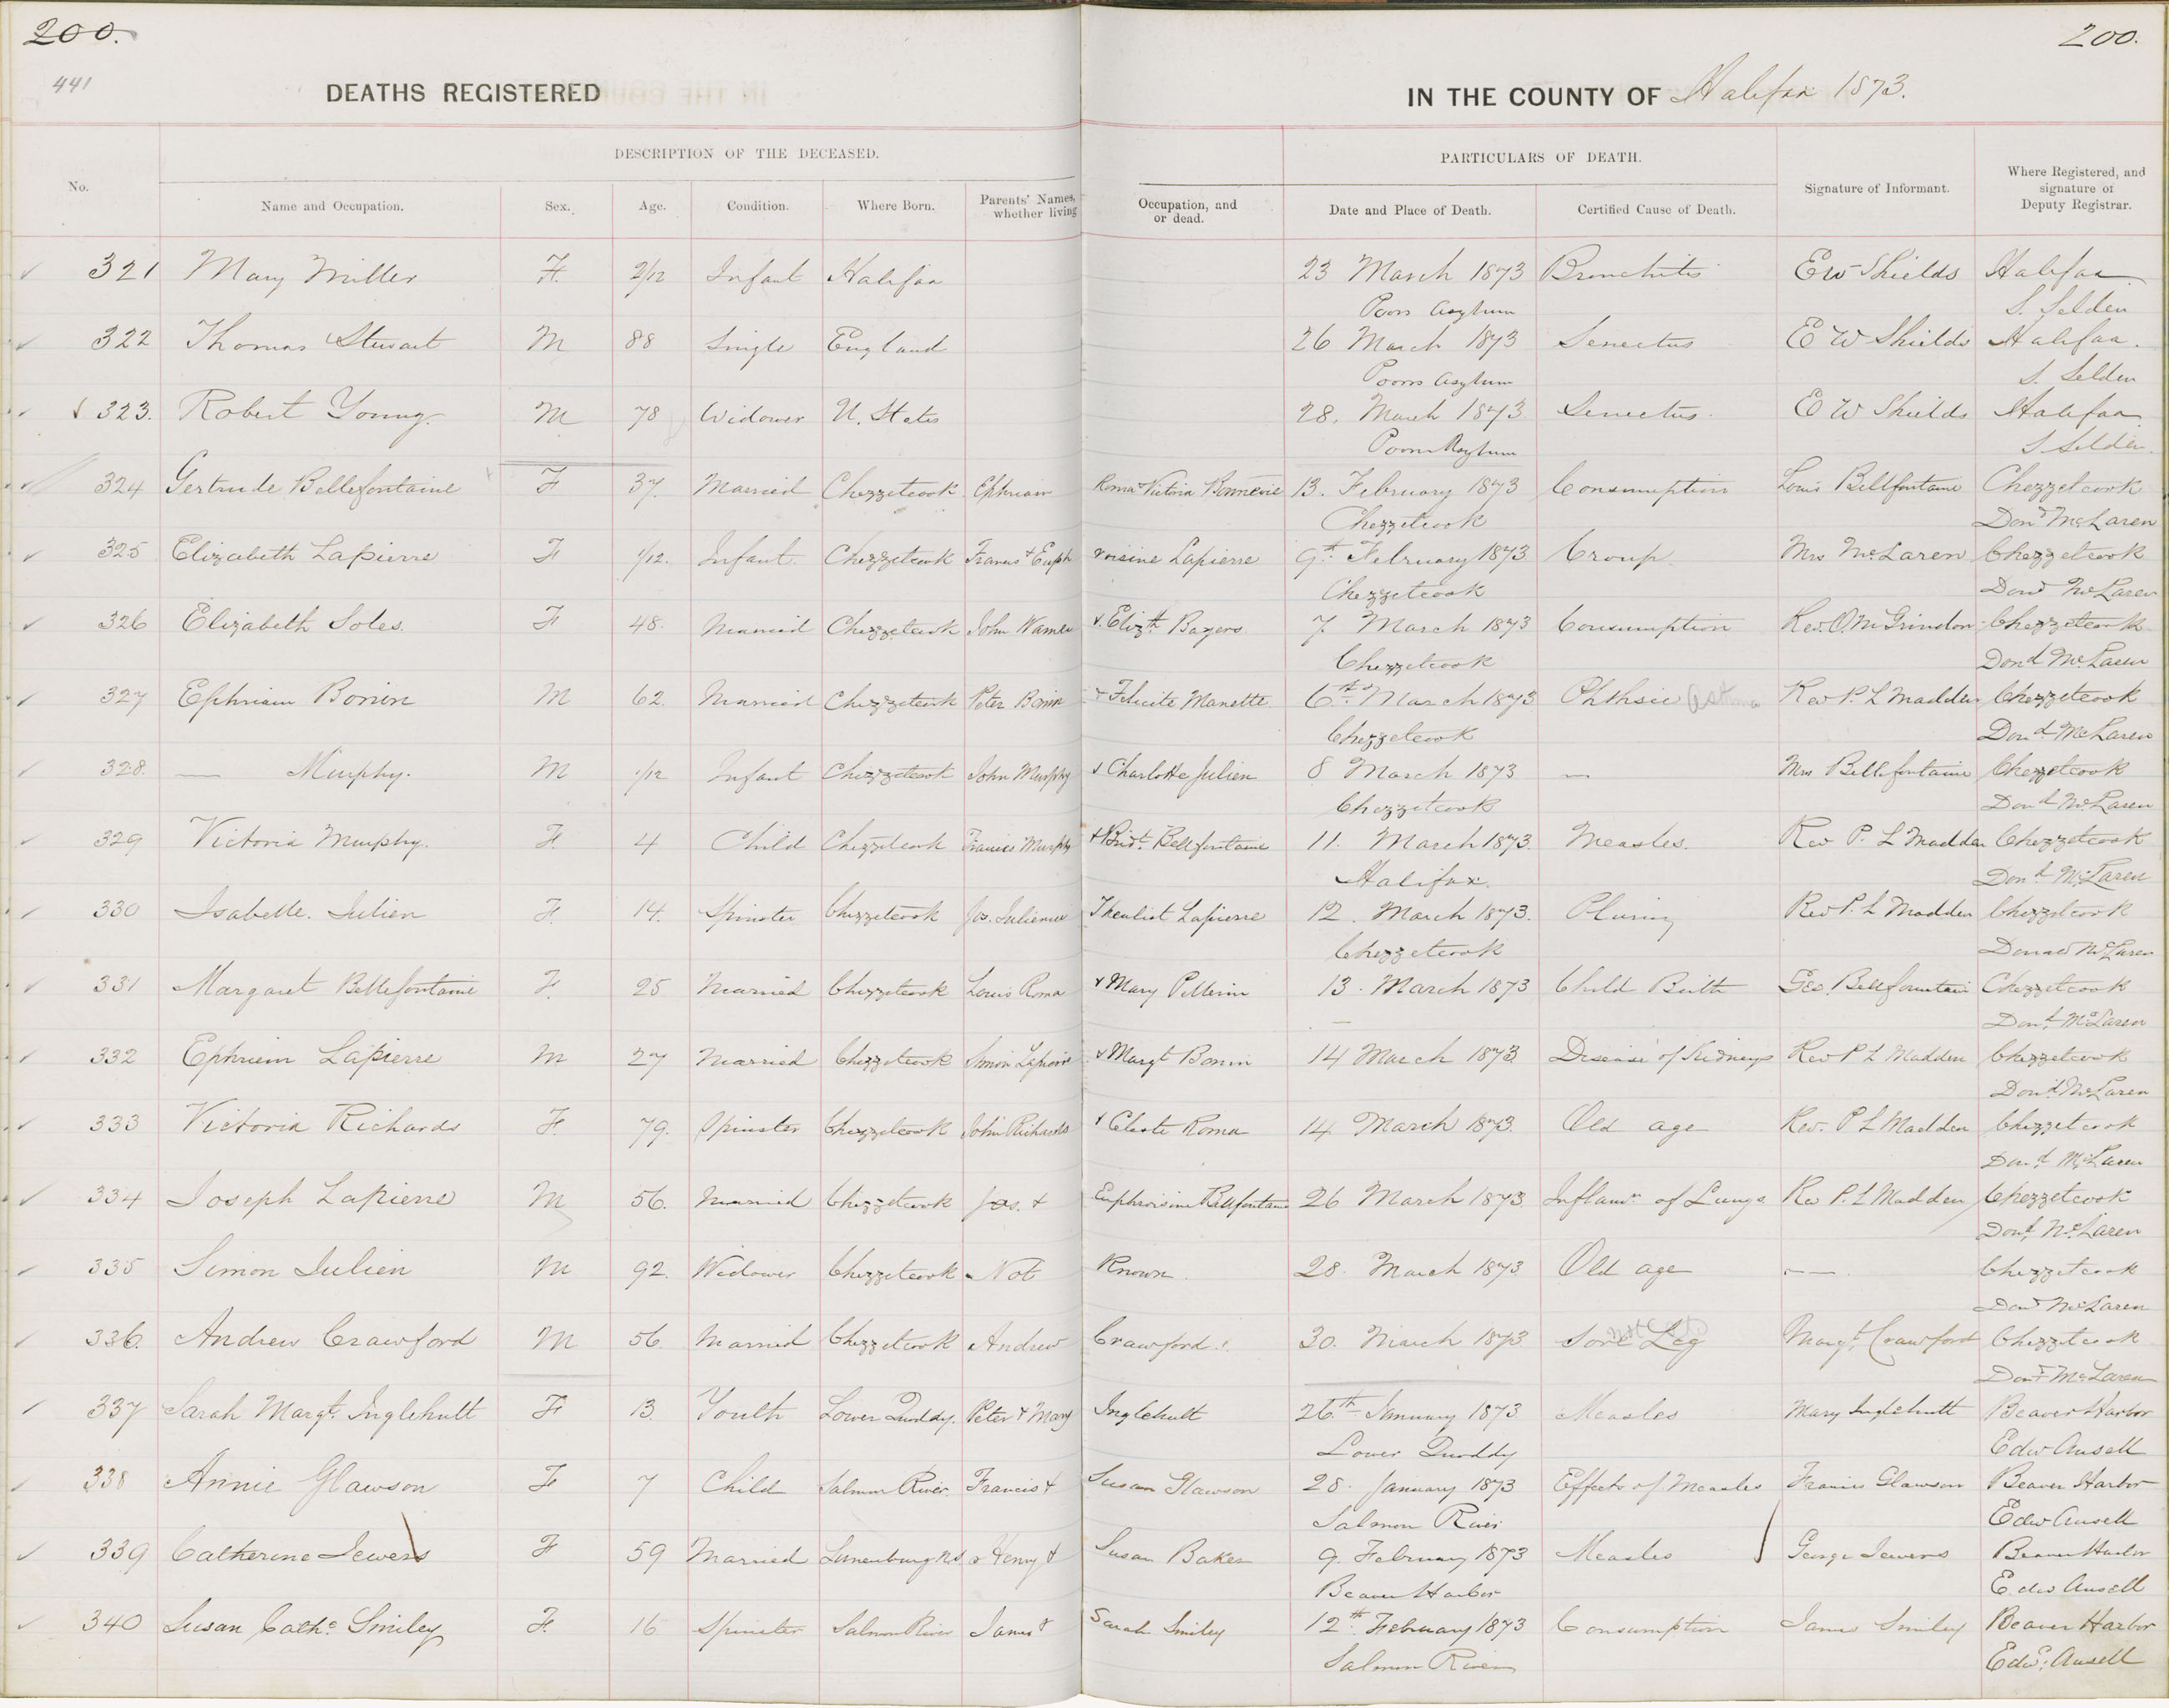 200. 200.
441
DEATHS REGISTERED IN THE COUNTY OF Halifax 1873.
DESCRIPTION OF THE DECEASED. PARTICULARS OF DEATH.
No. Name and Occupation. Sex. Age. Condition. Where Born. Parents' Names, whether living Occupation, and or dead. Date and Place of Death. Certified Cause of Death. Signature of Informant. Where Registered, and signature of Deputy Registrar.
321 Mary Miller F. 2/12 Infant Halifax 23 March 1873 Bronchitis E W Shields Halifax
Poors Asylum S. Selden
322 Thomas Stewart M 88 Single England 26 March 1873 Senectus E W Shields Halifax.
Poors Asylum S. Selden
323. Robert Young. M 78 Widower U. States 28. March 1873 Senectus. E W Shields Halifax
Poors Asylum S Selden
324 Gertrude Bellefontaine F 37. Married Chezzetcook Ephriam Roma & Victoria Bonnevie 13. February 1873 Consumption Louis Bellfontaine Chezzetcook
Chezzetcook Dond McLaren
325 Elizabeth Lapierre F 1/12. Infant Chezzetcook Francis & Euph roisine Lapierre 9th February 1873 Croup. Mrs McLaren Chezzetcook
Chezzetcook Dond McLaren
326 Elizabeth Soles. F 48. Married Chezzetcook John Warner & Elizth Bayers 7. March 1873 Consumption Rev. O. McGrindon Chezzetcook
Chezzetcook Dond McLaren
327 Ephriam Bonin M 62. Married Chezzetcook Peter Bonin & Felicite Manette 6th March 1873 Phthsic Astma Rev P. L Madden Chezzetcook
Chezzetcook Dond McLaren
328. — Murphy. M 1/12 Infant Chezzetcook John Murphy & Charlotte Julien 8 March 1873 — Mrs Bellefontaine Chezzetcook
Chezzetcook Dond McLaren
329 Victoria Murphy. F. 4 Child Chezzetcook Francis Murphy & Bridt. Bellefontaine 11. March 1873. Measles. Rev P. L Madden Chezzetcook
Halifax. Dond McLaren
330 Isabelle. Julien F. 14. Spinster Chezzetcook Jos. Julien Lapierre 12. March 1873. Rev P. L Madden Chezzetcook
Chezzetcook Donad McLaren
331 Margaret Bellefontaine F. 25 Married Chezzetcook Louis Roma & Mary Pellerin 13. March 1873 Child Birth Geo. Bellfountain Chezzetcook
— Dond McLaren
332 Ephriem Lapierre M 27 Married Chezzetcook Simon Lapierre & Margt Bonin 14 March 1873 Disease of Kidneys Rev P L Madden Chezzetcook
Dond McLaren
333 Victoria Richards F. 79. Spinster Chezzetcook John Richards & Celeste Roma 14 March 1873. Old age Rev. P L Madden Chezzetcook
Dond McLaren
334 Joseph Lapierre M 56. Married Chezzetcook Jas. & Euphroisine Bellefontaine 26 March 1873 Inflamn of Lungs Rev P. L Madden Chezzetcook
Dond McLaren
335 Simon Julien M 92. Widower Chezzetcook Not Known 28. March 1873 Old age — Chezzetcook
Dond McLaren
336. Andrew Crawford M 56 Married Chezzetcook Andrew Crawford 30. March 1873 Sore Leg Margt. Crawford Chezzetcook
Dond McLaren
337 Sarah Margt. Inglehutt F 13 Youth Lower Quoddy. Peter & Mary Inglehutt 26th January 1873 Measles Mary Inglehutt Beaver Harbor
Lower Quoddy Edw Ansell
338 Annie Glawson F 7 Child Salmon River. Francis & Susan Glawson 28. January 1873 Effects of Measles Francis Glawson Beaver Harbor
Salmon River Edw Ansell
339 Catherine Jewers F 59 Married Lunenburg N.S. Henry & Susan Baker 9. February 1873 Measles George Jewers Beaver Harbor
Beaver Harbor Edw Ansell
340 Susan Cathe Smiley F. 16 Spinster Salmon River James & Sarah Smiley 12th February 1873 Consumption James Smiley Beaver Harbor
Salmon River Edw. Ansell